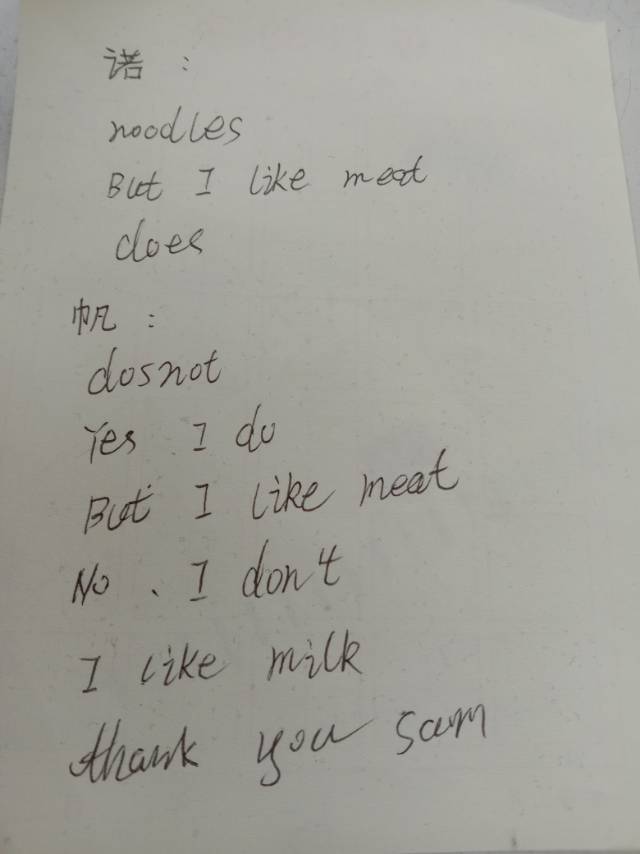 诺：
noodles
But I like meat
does
帆：
dosnot
Yes I do
But I like meat
No、I don't
I like milk
thank you sam